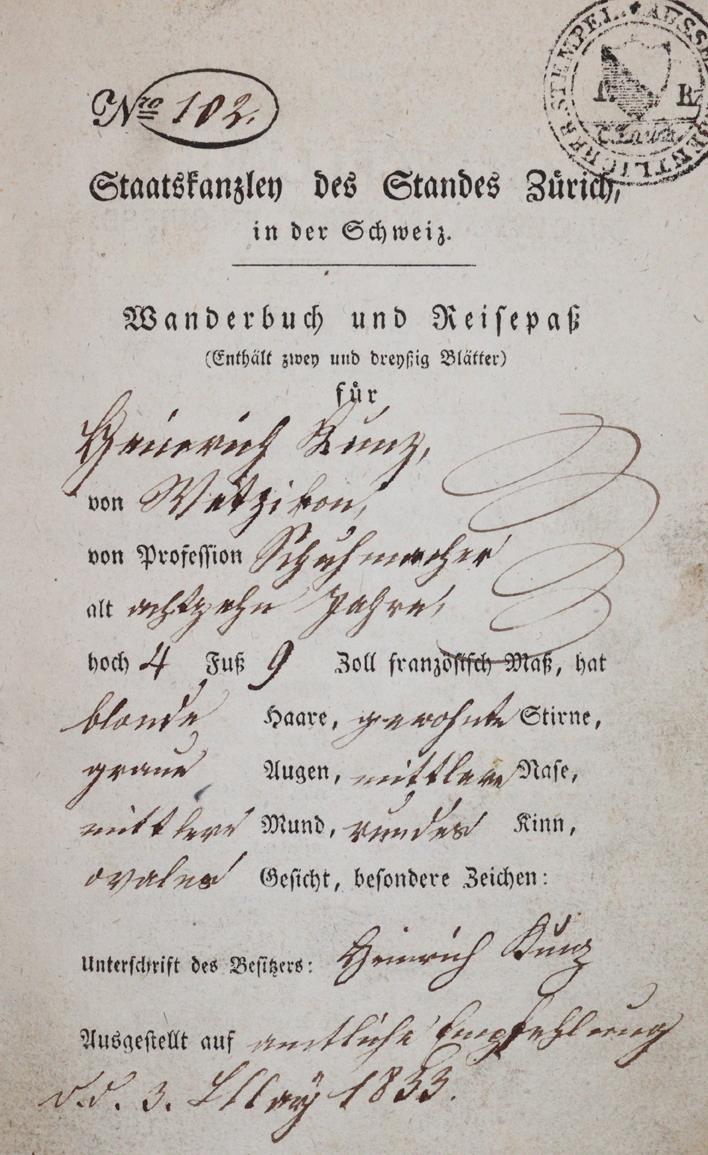 Nro 102.
AUSSERORDENTLICHER STEMPEL
R.
Staatskanzley des Standes Zürich,
in der Schweiz.
Wanderbuch und Reisepaß
(Enthält zwey und dreyßig Blätter)
für
Heinrich Kunz,
von Wetzikon,
von Profession Schuhmacher
alt achtzehn Jahre,
hoch 4 Fuß 9 Zoll französisch Maß, hat
blonde Haare, gewohnte Stirne,
graue Augen, mittlere Nase,
mittlere Mund, rundes Kinn,
ovales Gesicht, besondere Zeichen:
Unterschrift des Besitzers: Heinrich Kunz
Ausgestellt auf amtliche Empfehlung
d.d. 3. May 1833.